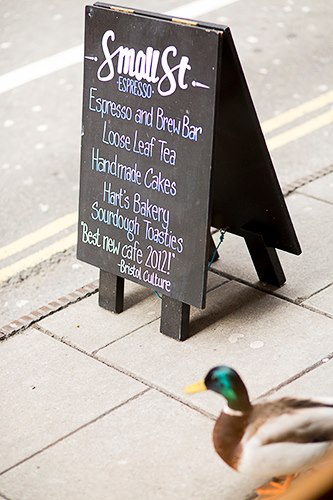 Small St
ESPRESSO
Espresso and Brew Bar
Loose Leaf Tea
Handmade Cakes
Hart's Bakery
Sourdough Toasties
"Best new cafe 2012!"
-Bristol Culture